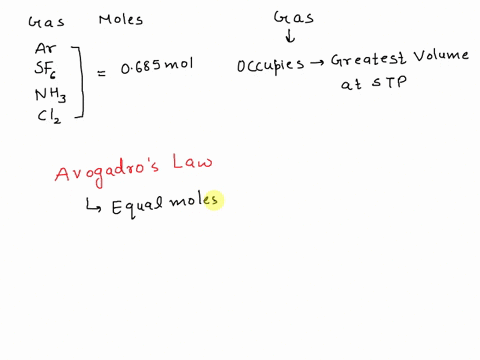 Gas Moles
Ar
SF6
NH3
Cl2
= 0.685 mol
Gas
↓
Occupies → Greatest Volume
at STP
Avogadro's Law
↳ Equal moles